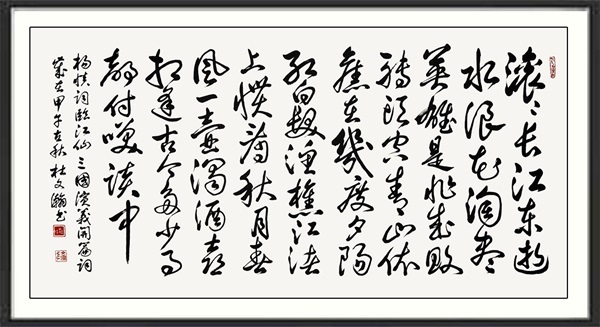 滚〻长江东逝
水浪花淘尽
英雄是非成败
转头空青山依
舊在幾度夕阳
红白发渔樵江渚
上惯看秋月春
风一壶浊酒喜
相逢古今多少事
都付笑谈中
杨慎词临江仙三國演義開篇词
歲在甲午秋杜文瀚书